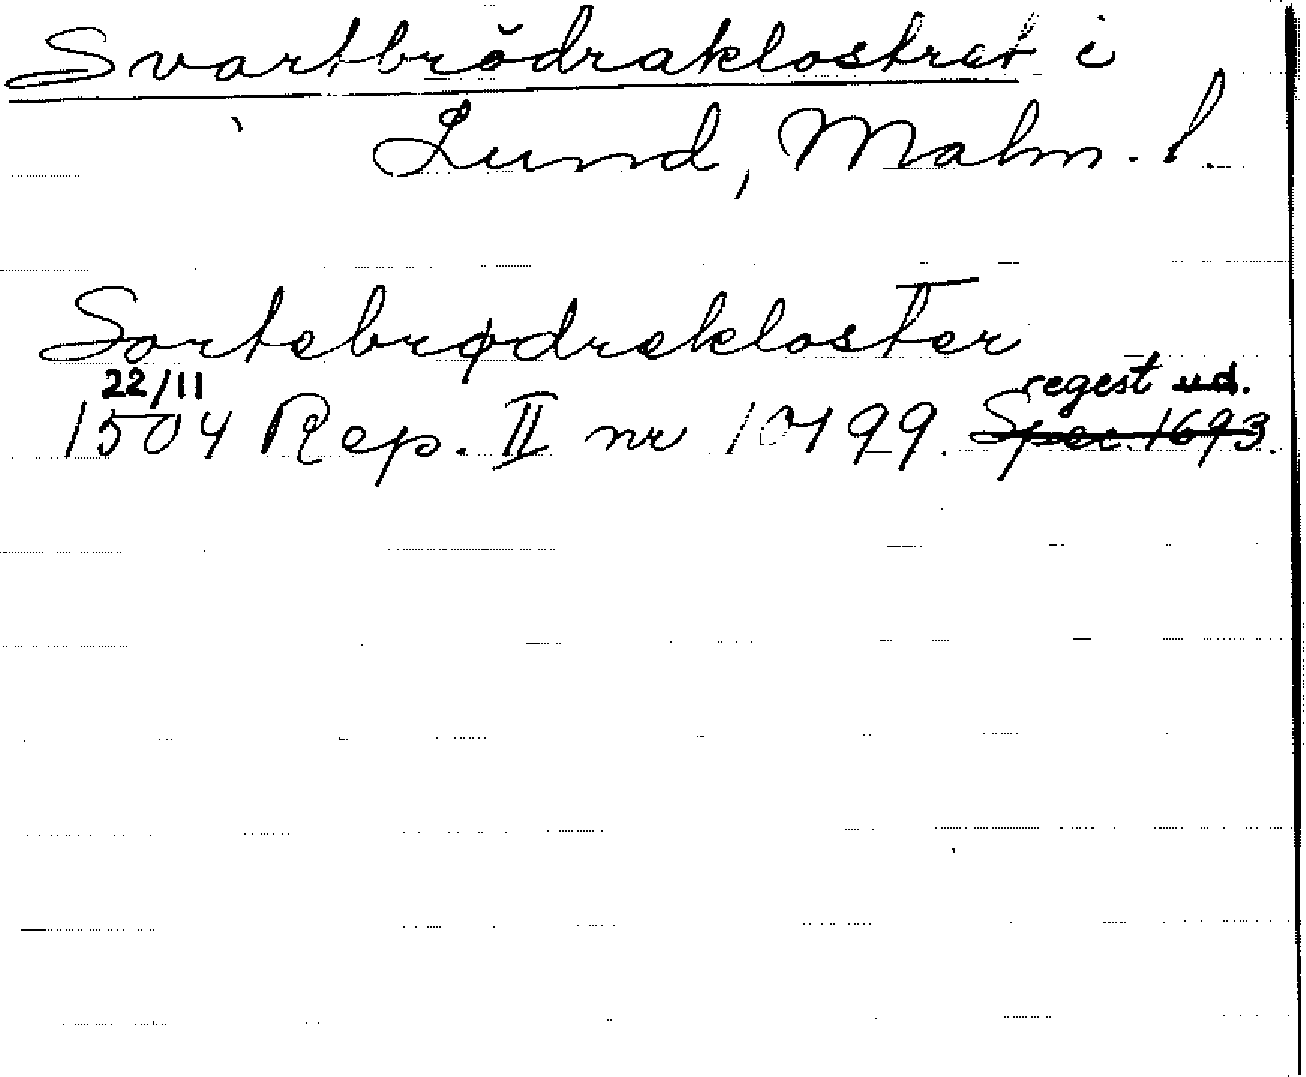 Svartbrödraklostret i
Lund, Malm. l.
Sortebrødrekloster
22/11 regest ud.
1504 Rep. II nr 10499. Spec. 1693.